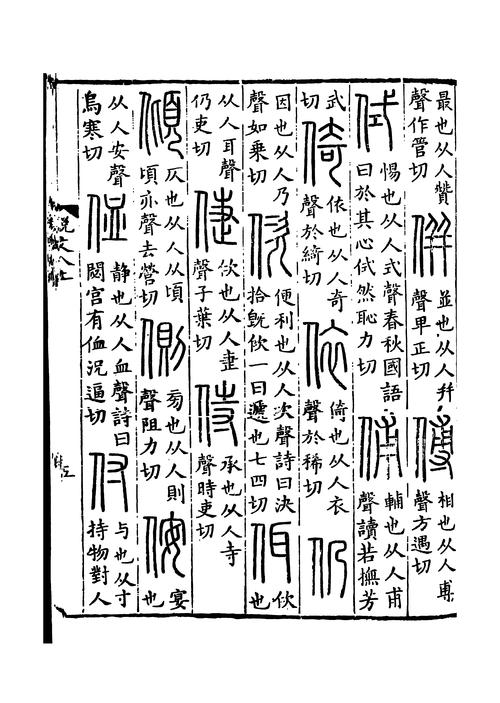 最也从人贊
聲作管切
倂
並也从人幷
聲卑正切
傅
相也从人尃
聲方遇切
侙
惕也从人式聲春秋國語
曰於其心侙然恥力切
俌
輔也从人甫
聲讀若撫芳
武
切
倚
依也从人奇
聲於綺切
依
倚也从人衣
聲於稀切
仍
因也从人乃
聲如乗切
佽
便利也从人次聲詩曰決
拾旣佽一曰遞也七四切
佴
佽
也
从人耳聲
仍吏切
倢
佽也从人疌
聲子葉切
侍
承也从人寺
聲時吏切
傾
仄也从人从頃
頃亦聲去營切
側
㫄也从人則
聲阻力切
侒
宴
也
从人安聲
烏寒切
侐
静也从人血聲詩曰
閟宫有侐況逼切
付
与也从寸
持物對人
說文八上